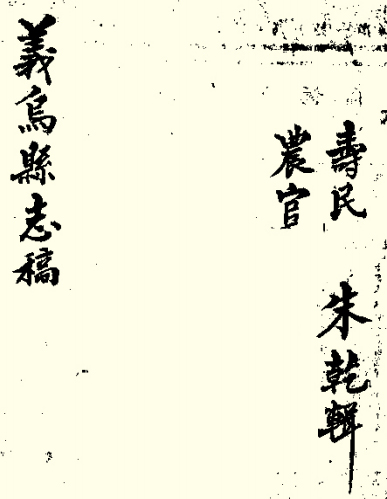 壽民
農官
朱乾輯
義烏縣志稿